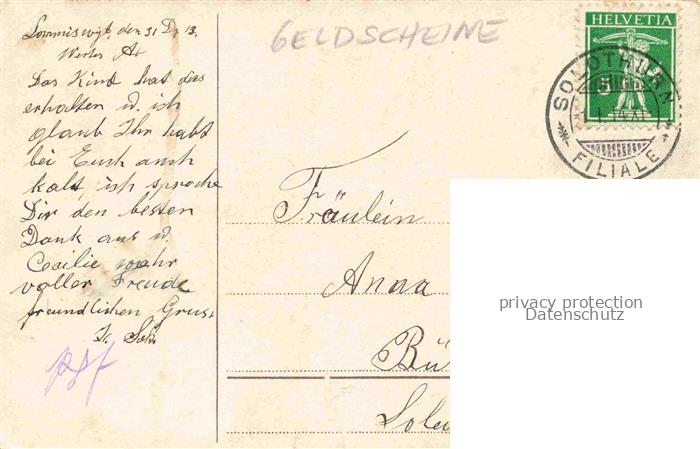 Lommiswyl, den 31 Dz. 13.
Wertes A
Das Kind hat dies
erhalten u. ich
glaub Ihr habt
bei Euch auch
kalt, ich spreche
Dir den besten
Dank aus u.
Cecilie wahr
voller Freude
freundlichen Gruss
GELDSCHEINE
HELVETIA
5
SOLOTHURN
FILIALE
Fräulein
Anna
Bü
Solo
privacy protection
Datenschutz